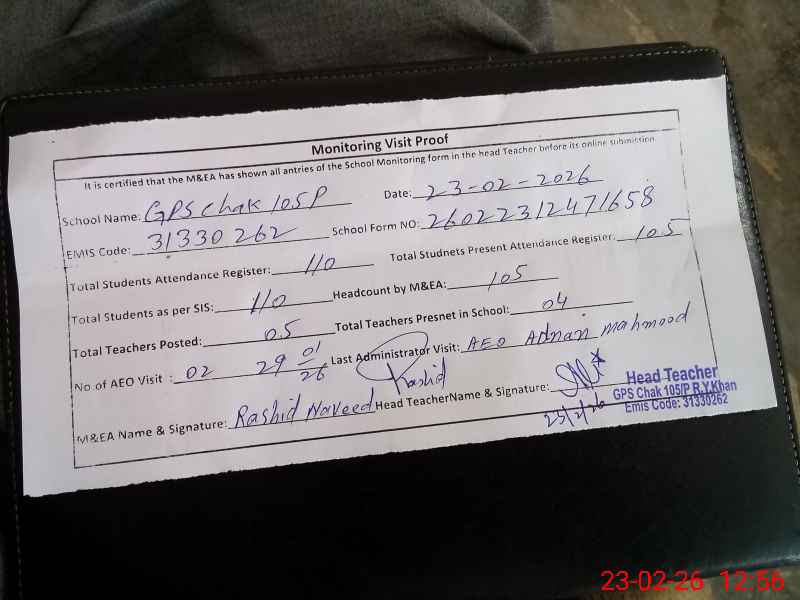 Monitoring Visit Proof
It is certified that the M&EA has shown all antries of the School Monitoring form in the head Teacher before its online submission
School Name: GPS Chak 105P Date: 23-02-2026
EMIS Code: 31330262 School Form NO: 26022312471658
Total Students Attendance Register: 110 Total Studnets Present Attendance Register: 105
Total Students as per SIS: 110 Headcount by M&EA: 105
Total Teachers Posted: 05 Total Teachers Presnet in School: 04
No of AEO Visit : 02 29 01/26 Last Administrator Visit: AEO Adnan Mahmood
M&EA Name & Signature: Rashid Naveed Rashid Head TeacherName & Signature:
23/2/26
Head Teacher
GPS Chak 105/P R.Y.Khan
Emis Code: 31330262
23-02-26 12:56